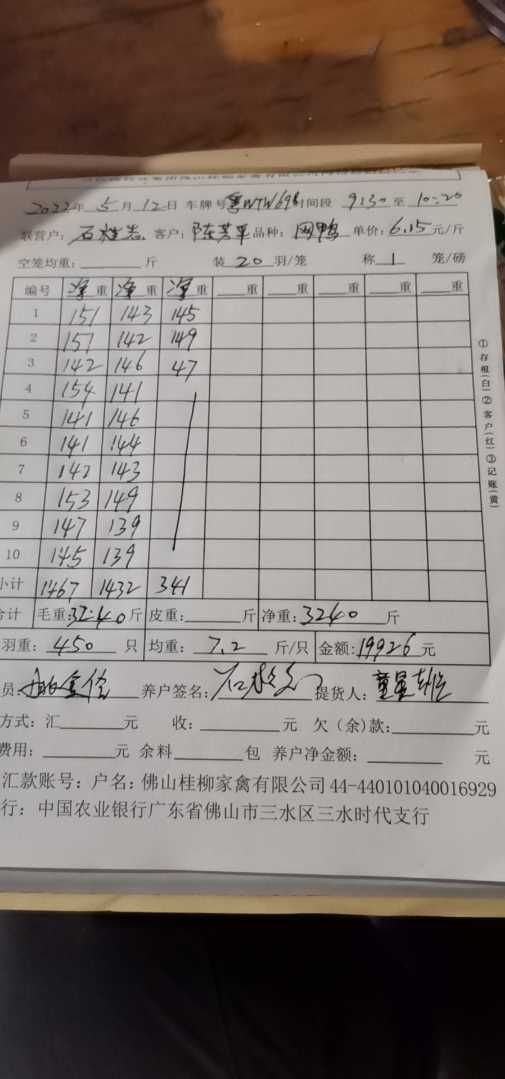 2022年 5月 12日 车牌号 粤WTW698 时间段 9:30 至 10:20
联营户: 石 客户: 陈 品种: 网鸭 单价: 6.15 元/斤
空笼均重: 斤 装 20 羽/笼 称 1 笼/磅
编号 净重 净重 净重 重 重 重 重 重
1 151 143 145
2 151 142 149
3 142 146 47
4 154 141
5 141 146
6 141 144
7 142 143
8 153 149
9 147 139
10 145 139
小计 1467 1432 341
合计 毛重: 3240 斤 皮重: 斤 净重: 3240 斤
羽重: 450 只 均重: 7.2 斤/只 金额: 19926 元
员: 养户签名: 提货人:
方式: 汇 元 收: 元 欠(余)款: 元
费用: 元 余料 包 养户净金额: 元
汇款账号: 户名: 佛山桂柳家禽有限公司 44-440101040016929
行: 中国农业银行广东省佛山市三水区三水时代支行
①存根(白)②客户(红)③记账(黄)